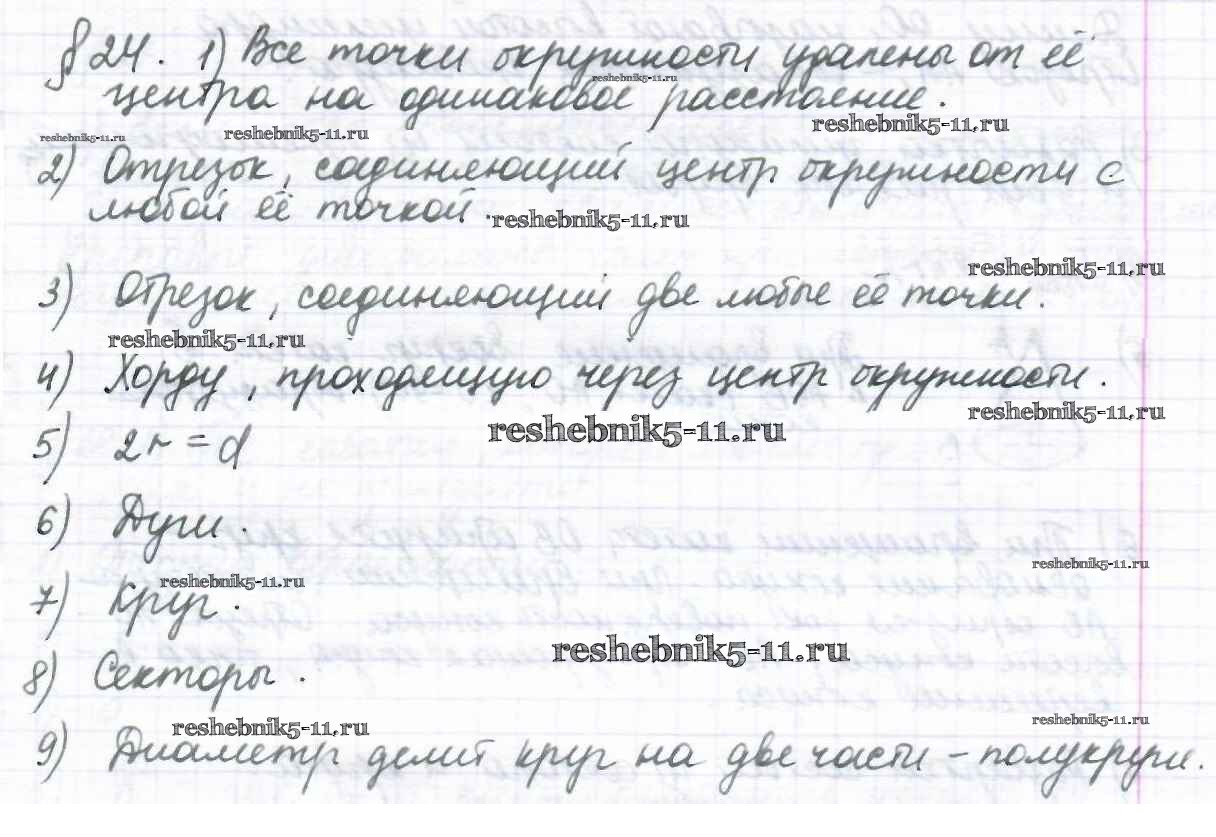 § 24. 1) Все точки окружности удалены от её
reshebnik5-11.ru
центра на одинаковое расстояние.
reshebnik5-11.ru reshebnik5-11.ru reshebnik5-11.ru
2) Отрезок, соединяющий центр окружности с
любой её точкой.
reshebnik5-11.ru
reshebnik5-11.ru
3) Отрезок, соединяющий две любые её точки.
reshebnik5-11.ru
4) Хорду, проходящую через центр окружности.
reshebnik5-11.ru
reshebnik5-11.ru
5) 2r = d
6) Дуги.
reshebnik5-11.ru
reshebnik5-11.ru
7) Круг.
reshebnik5-11.ru
8) Секторы.
reshebnik5-11.ru reshebnik5-11.ru
9) Диаметр делит круг на две части – полукруги.